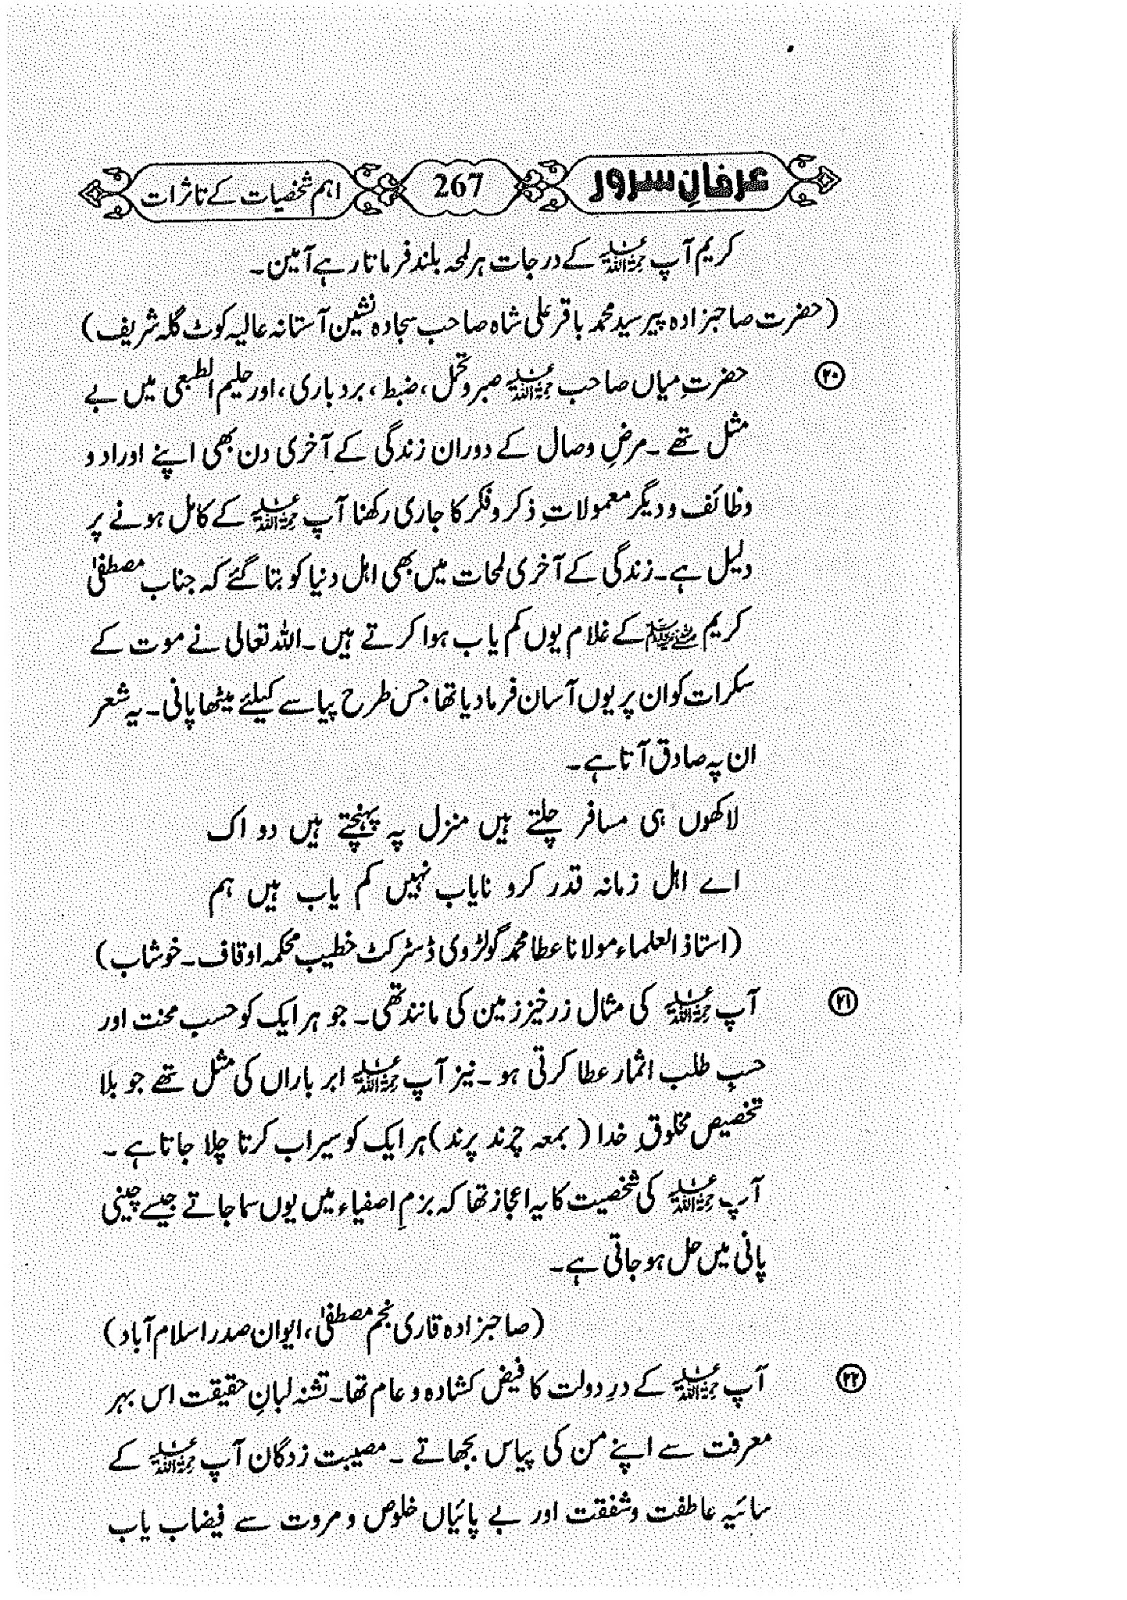 عرفانِ سرور
267
اہم شخصیات کے تاثرات
کریم آپ رحمۃ اللہ علیہ کے درجات ہر لمحہ بلند فرماتا رہے آمین۔
(حضرت صاحبزادہ پیر سید محمد باقر علی شاہ صاحب سجادہ نشین آستانہ عالیہ کوٹ گلہ شریف)
۲۰
حضرتِ میاں صاحب رحمۃ اللہ علیہ صبر و تحمل، ضبط، بردباری، اور حلیم الطبعی میں بے
مثل تھے۔ مرضِ وصال کے دوران زندگی کے آخری دن بھی اپنے اوراد و
وظائف و دیگر معمولاتِ ذکر و فکر کا جاری رکھنا آپ رحمۃ اللہ علیہ کے کامل ہونے پر
دلیل ہے۔ زندگی کے آخری لمحات میں بھی اہل دنیا کو بتا گئے کہ جناب مصطفیٰ
کریم ﷺ کے غلام یوں کم یاب ہوا کرتے ہیں۔ اللہ تعالی نے موت کے
سکرات کو ان پر یوں آسان فرما دیا تھا جس طرح پیاسے کیلئے میٹھا پانی۔ یہ شعر
ان پہ صادق آتا ہے۔
لاکھوں ہی مسافر چلتے ہیں منزل پہ پہنچتے ہیں دو اک
اے اہل زمانہ قدر کرو نایاب نہیں کم یاب ہیں ہم
(استاذ العلماء مولانا عطا محمد گولڑوی ڈسٹرکٹ خطیب محکمہ اوقاف۔ خوشاب)
۲۱
آپ رحمۃ اللہ علیہ کی مثال زرخیز زمین کی مانند تھی۔ جو ہر ایک کو حسب محنت اور
حسبِ طلب اثمار عطا کرتی ہو۔ نیز آپ رحمۃ اللہ علیہ ابر باراں کی مثل تھے جو بلا
تخصیص مخلوقِ خدا (بمعہ چرند پرند) ہر ایک کو سیراب کرتا چلا جاتا ہے۔
آپ رحمۃ اللہ علیہ کی شخصیت کا یہ اعجاز تھا کہ بزمِ اصفیاء میں یوں سما جاتے جیسے چینی
پانی میں حل ہو جاتی ہے۔
(صاحبزادہ قاری نجم مصطفیٰ، ایوان صدر اسلام آباد)
۲۲
آپ رحمۃ اللہ علیہ کے درِ دولت کا فیض کشادہ و عام تھا۔ تشنہ لبانِ حقیقت اس بہر
معرفت سے اپنے من کی پیاس بجھاتے۔ مصیبت زدگان آپ رحمۃ اللہ علیہ کے
سائیہ عاطفت و شفقت اور بے پائیاں خلوص و مروت سے فیضاب یاب